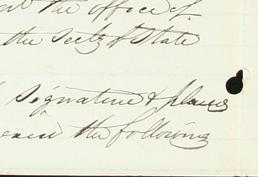 the office of
the Secty of State
signature & place
the following